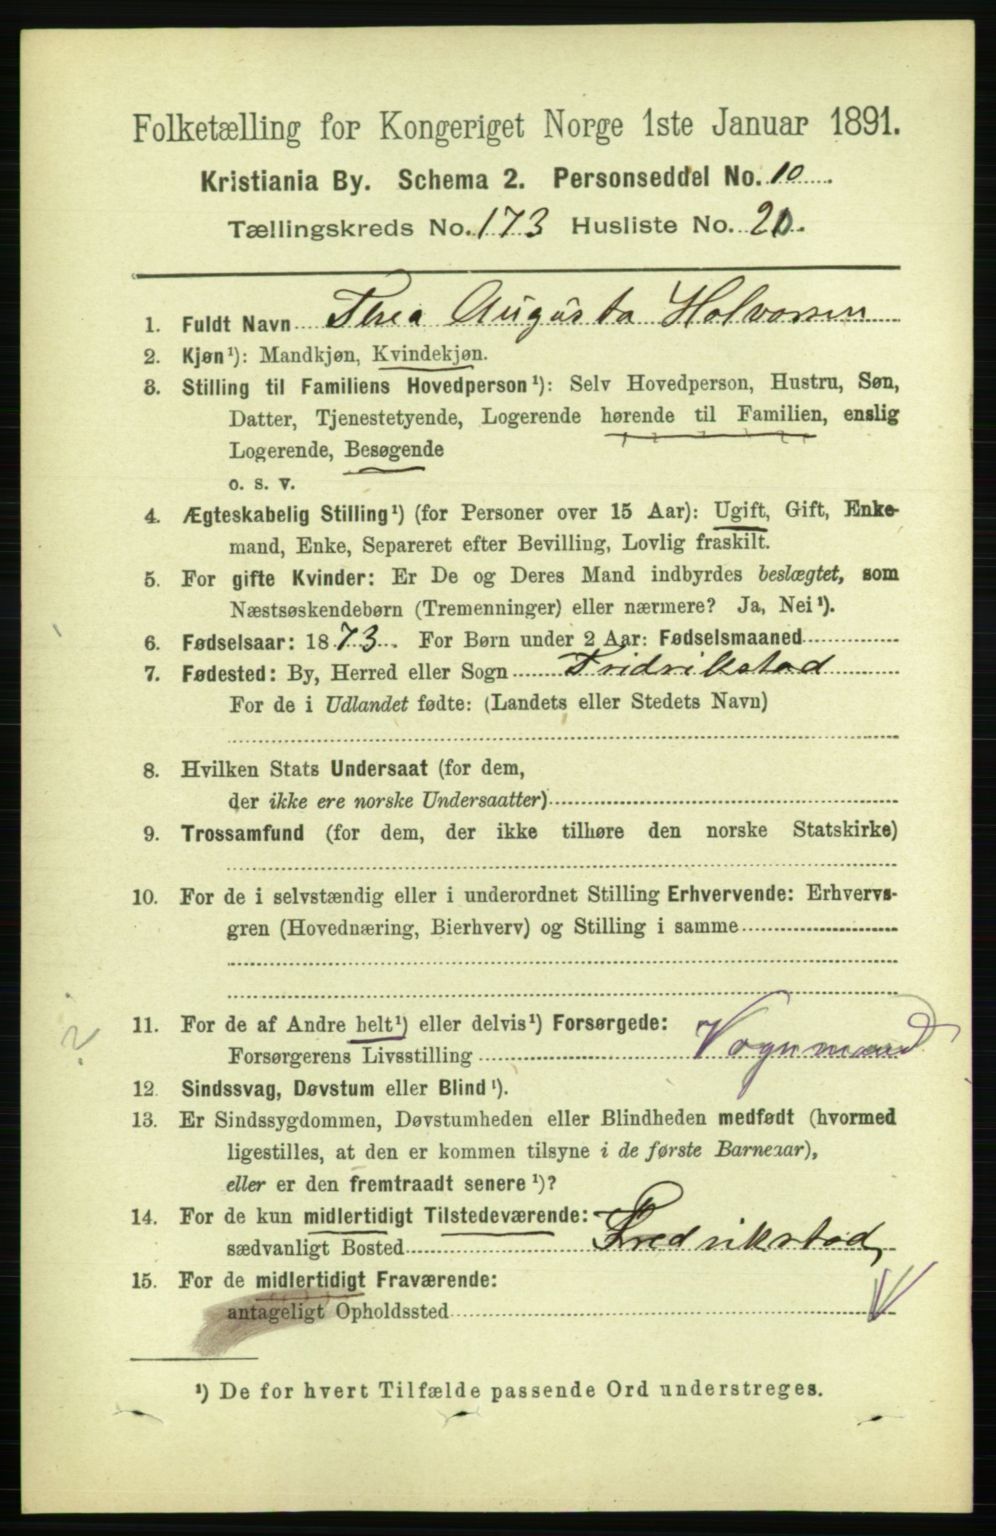 Folketælling for Kongeriget Norge 1ste Januar 1891.
Kristiania By. Schema 2. Personseddel No. 10.
Tællingskreds No. 173 Husliste No. 20.
1. Fuldt Navn Thea Augusta Halvorsen
2. Kjøn¹): Mandkjøn, Kvindekjøn.
3. Stilling til Familiens Hovedperson¹): Selv Hovedperson, Hustru, Søn,
Datter, Tjenestetyende, Logerende hørende til Familien, enslig
Logerende, Besøgende
o. s. v.
4. Ægteskabelig Stilling¹) (for Personer over 15 Aar): Ugift, Gift, Enke-
mand, Enke, Separeret efter Bevilling, Lovlig fraskilt.
5. For gifte Kvinder: Er De og Deres Mand indbyrdes beslægtet, som
Næstsøskendebørn (Tremenninger) eller nærmere? Ja, Nei¹).
6. Fødselsaar: 1873. For Børn under 2 Aar: Fødselsmaaned
7. Fødested: By, Herred eller Sogn Fridrikstad
For de i Udlandet fødte: (Landets eller Stedets Navn)
8. Hvilken Stats Undersaat (for dem,
der ikke ere norske Undersaatter)
9. Trossamfund (for dem, der ikke tilhøre den norske Statskirke)
10. For de i selvstændig eller i underordnet Stilling Erhvervende: Erhvervs-
gren (Hovednæring, Bierhverv) og Stilling i samme
11. For de af Andre helt¹) eller delvis¹) Forsørgede:
Forsørgerens Livsstilling Vognmand
12. Sindssvag, Døvstum eller Blind¹).
13. Er Sindssygdommen, Døvstumheden eller Blindheden medfødt (hvormed
ligestilles, at den er kommen tilsyne i de første Barneaar),
eller er den fremtraadt senere¹)?
14. For de kun midlertidigt Tilstedeværende:
sædvanligt Bosted Fredrikstad,
15. For de midlertidigt Fraværende:
antageligt Opholdssted
¹) De for hvert Tilfælde passende Ord understreges.